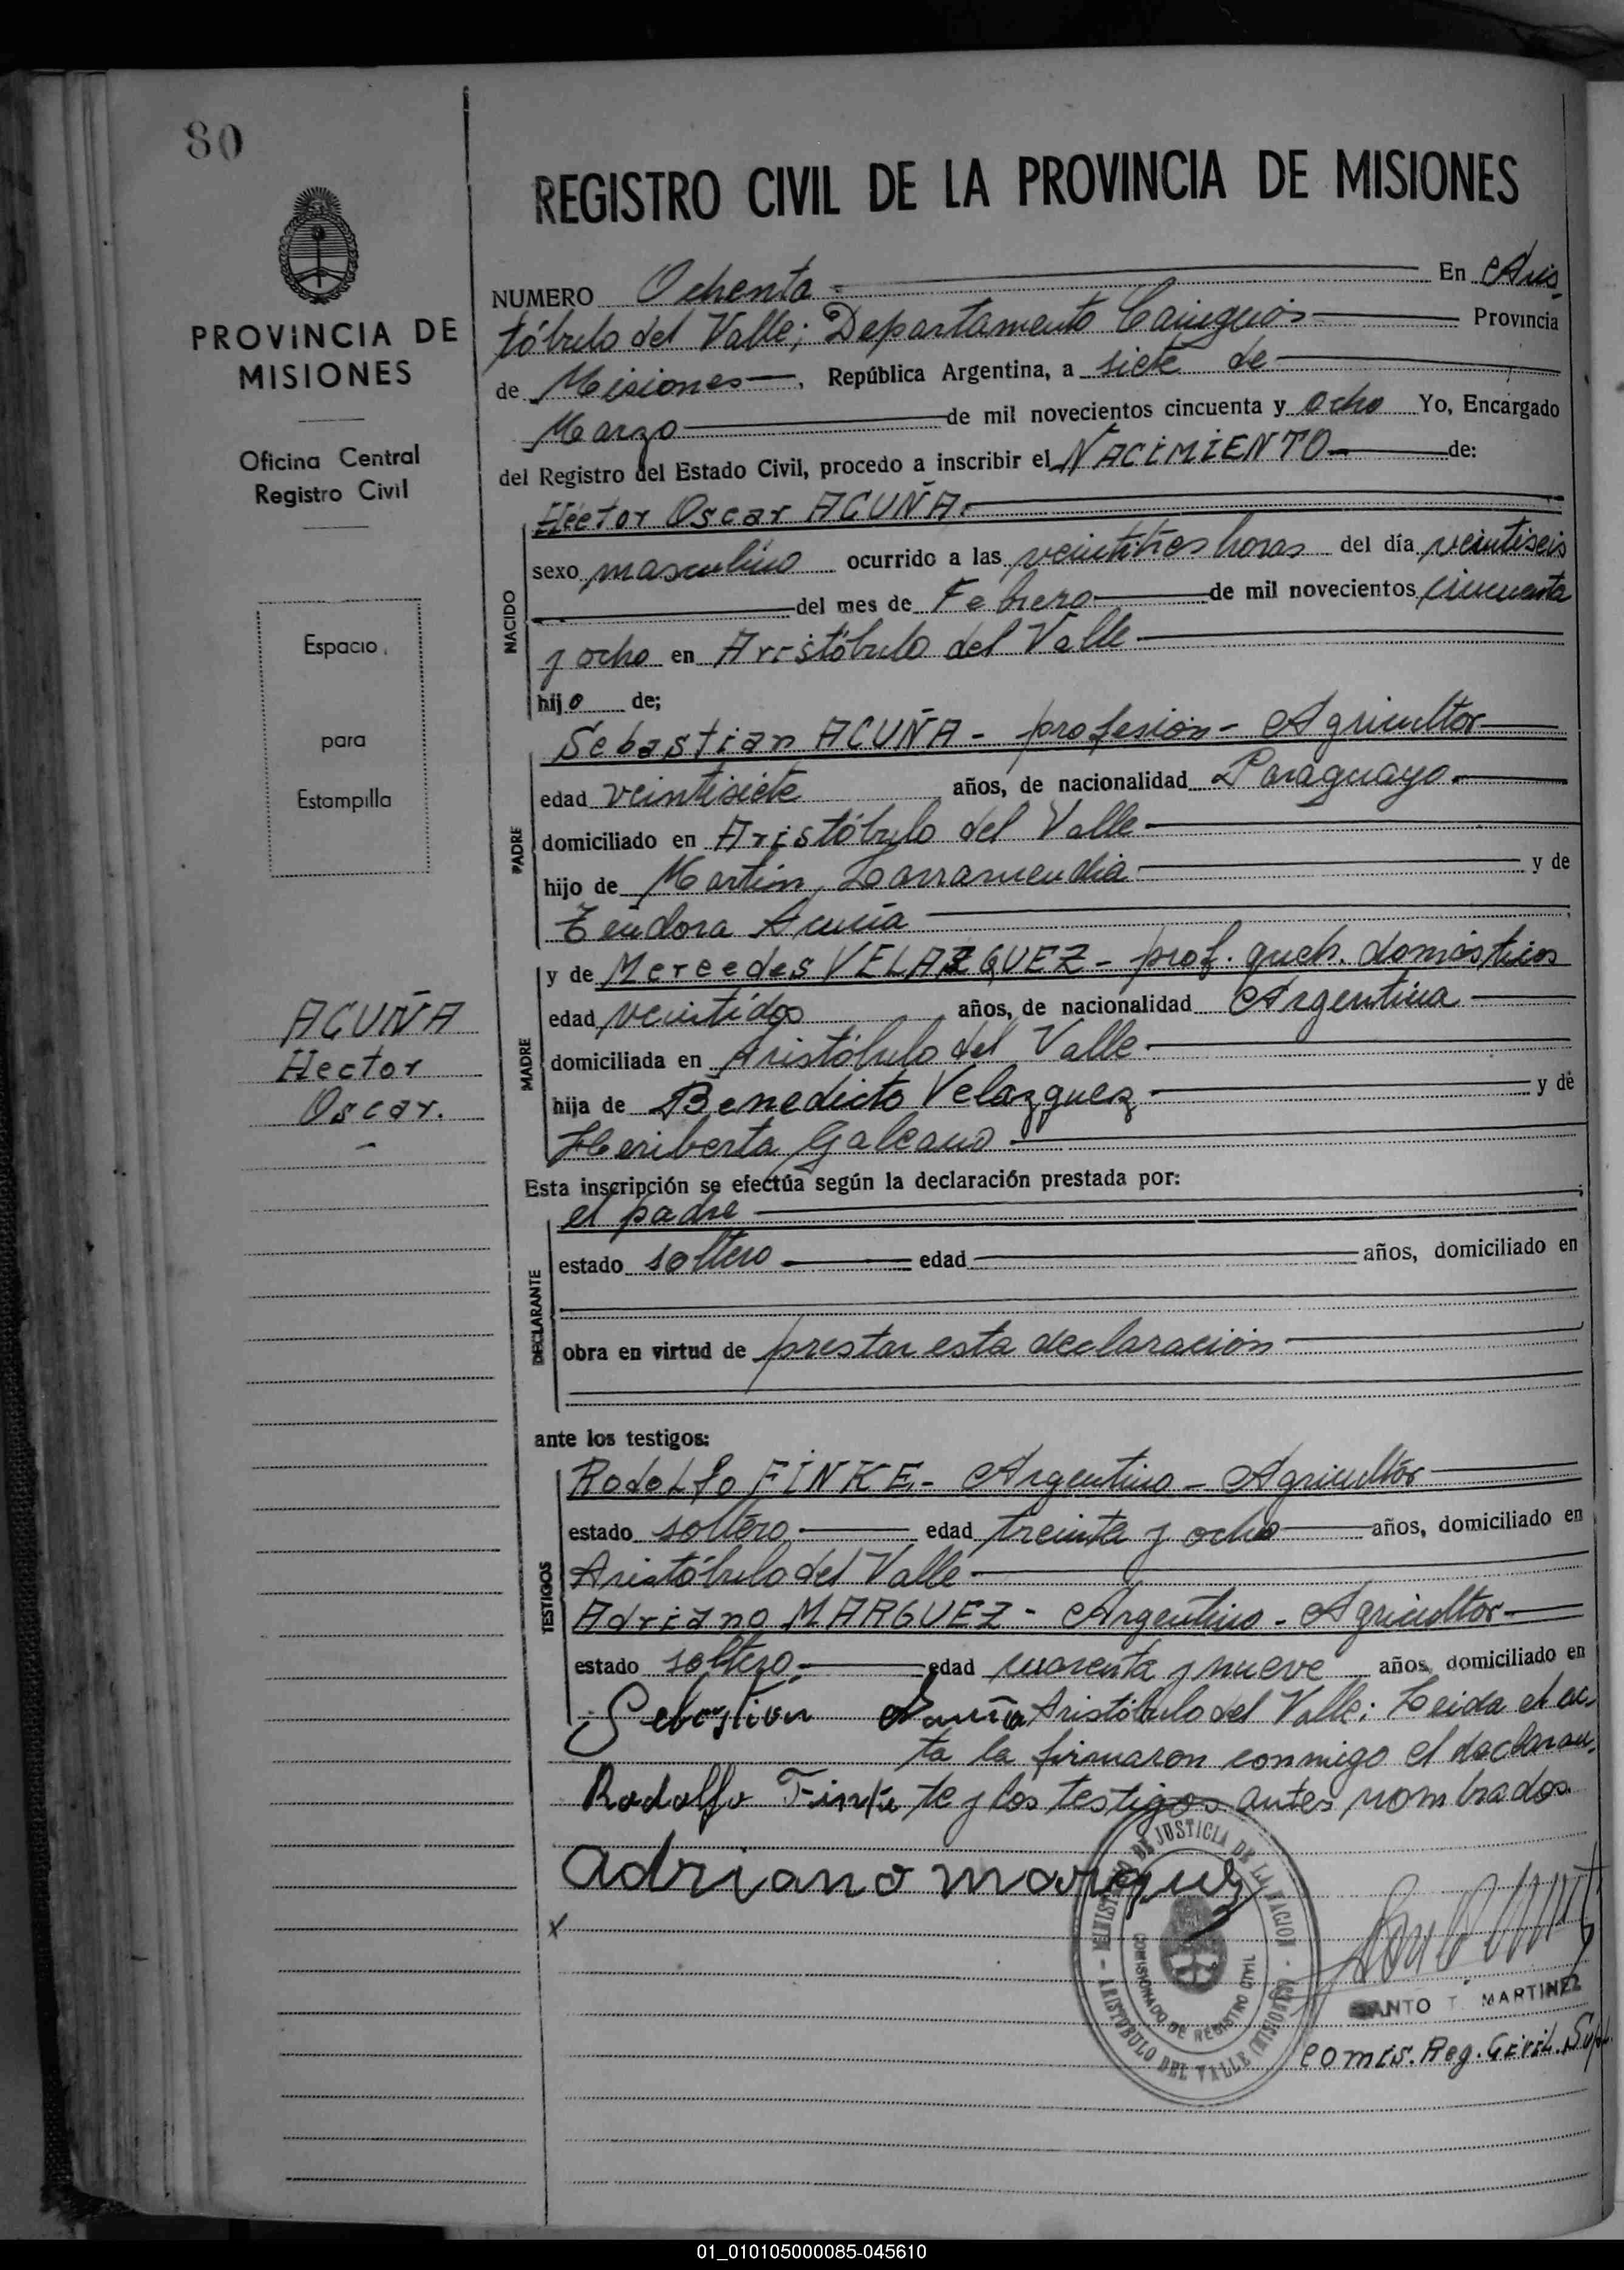 80
PROVINCIA DE
MISIONES
Oficina Central
Registro Civil
Espacio
para
Estampilla
ACUÑA
Hector
Oscar.
REGISTRO CIVIL DE LA PROVINCIA DE MISIONES
NUMERO Ochenta En Aris-
tóbulo del Valle; Departamento Cainguás Provincia
de Misiones, República Argentina, a siete de
Marzo de mil novecientos cincuenta y ocho Yo, Encargado
del Registro del Estado Civil, procedo a inscribir el NACIMIENTO de:
NACIDO
Héctor Oscar ACUÑA.
sexo masculino ocurrido a las veintitres horas del día veintiseis
del mes de Febrero de mil novecientos cincuenta
y ocho en Aristóbulo del Valle
hijo de;
PADRE
Sebastian ACUÑA - profesión - Agricultor
edad veintisiete años, de nacionalidad Paraguayo.
domiciliado en Aristóbulo del Valle
hijo de Martin Larramendia y de
Teodora Acuña
MADRE
y de Mercedes VELAZQUEZ - prof. queh. domésticos
edad veintidos años, de nacionalidad Argentina
domiciliada en Aristóbulo del Valle
hija de Benedicto Velazquez y de
Heriberta Galeano
Esta inscripción se efectúa según la declaración prestada por:
DECLARANTE
el padre
estado soltero edad años, domiciliado en
obra en virtud de prestar esta declaración
ante los testigos:
TESTIGOS
Rodolfo FINKE - Argentino - Agricultor
estado soltero edad treinta y ocho años, domiciliado en
Aristóbulo del Valle
Adriano MARQUEZ - Argentino - Agricultor
estado soltero edad cuarenta y nueve años, domiciliado en
Sebastian Acuña Aristóbulo del Valle; Leida el ac-
ta la firmaron conmigo el declaran-
Rodolfo Finke te y los testigos antes nombrados
adriano marquez
x
MINISTERIO DE JUSTICIA DE LA NACION - ARISTOBULO DEL VALLE (MISIONES) -
COMISIONADO DE REGISTRO CIVIL
SANTO T. MARTINEZ
Comis. Reg. Civil. Supl.
01_010105000085-045610